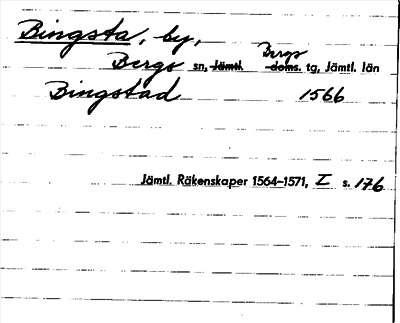 Bingsta, by,
Bergs sn, Jämtl. Bergs doms. tg, Jämtl. län
Bingstad 1566
Jämtl. Räkenskaper 1564–1571, I s. 176